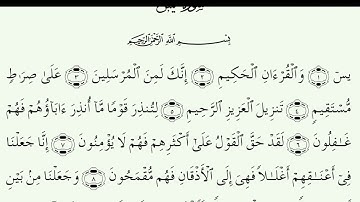 سورة يس
بِسْمِ اللَّهِ الرَّحْمَٰنِ الرَّحِيمِ
يسٓ ١ وَٱلْقُرْءَانِ ٱلْحَكِيمِ ٢ إِنَّكَ لَمِنَ ٱلْمُرْسَلِينَ ٣ عَلَىٰ صِرَٰطٍ
مُّسْتَقِيمٍ ٤ تَنزِيلَ ٱلْعَزِيزِ ٱلرَّحِيمِ ٥ لِتُنذِرَ قَوْمًا مَّآ أُنذِرَ ءَابَآؤُهُمْ فَهُمْ
غَٰفِلُونَ ٦ لَقَدْ حَقَّ ٱلْقَوْلُ عَلَىٰٓ أَكْثَرِهِمْ فَهُمْ لَا يُؤْمِنُونَ ٧ إِنَّا جَعَلْنَا
فِىٓ أَعْنَٰقِهِمْ أَغْلَٰلًا فَهِىَ إِلَى ٱلْأَذْقَانِ فَهُم مُّقْمَحُونَ ٨ وَجَعَلْنَا مِنۢ بَيْنِ